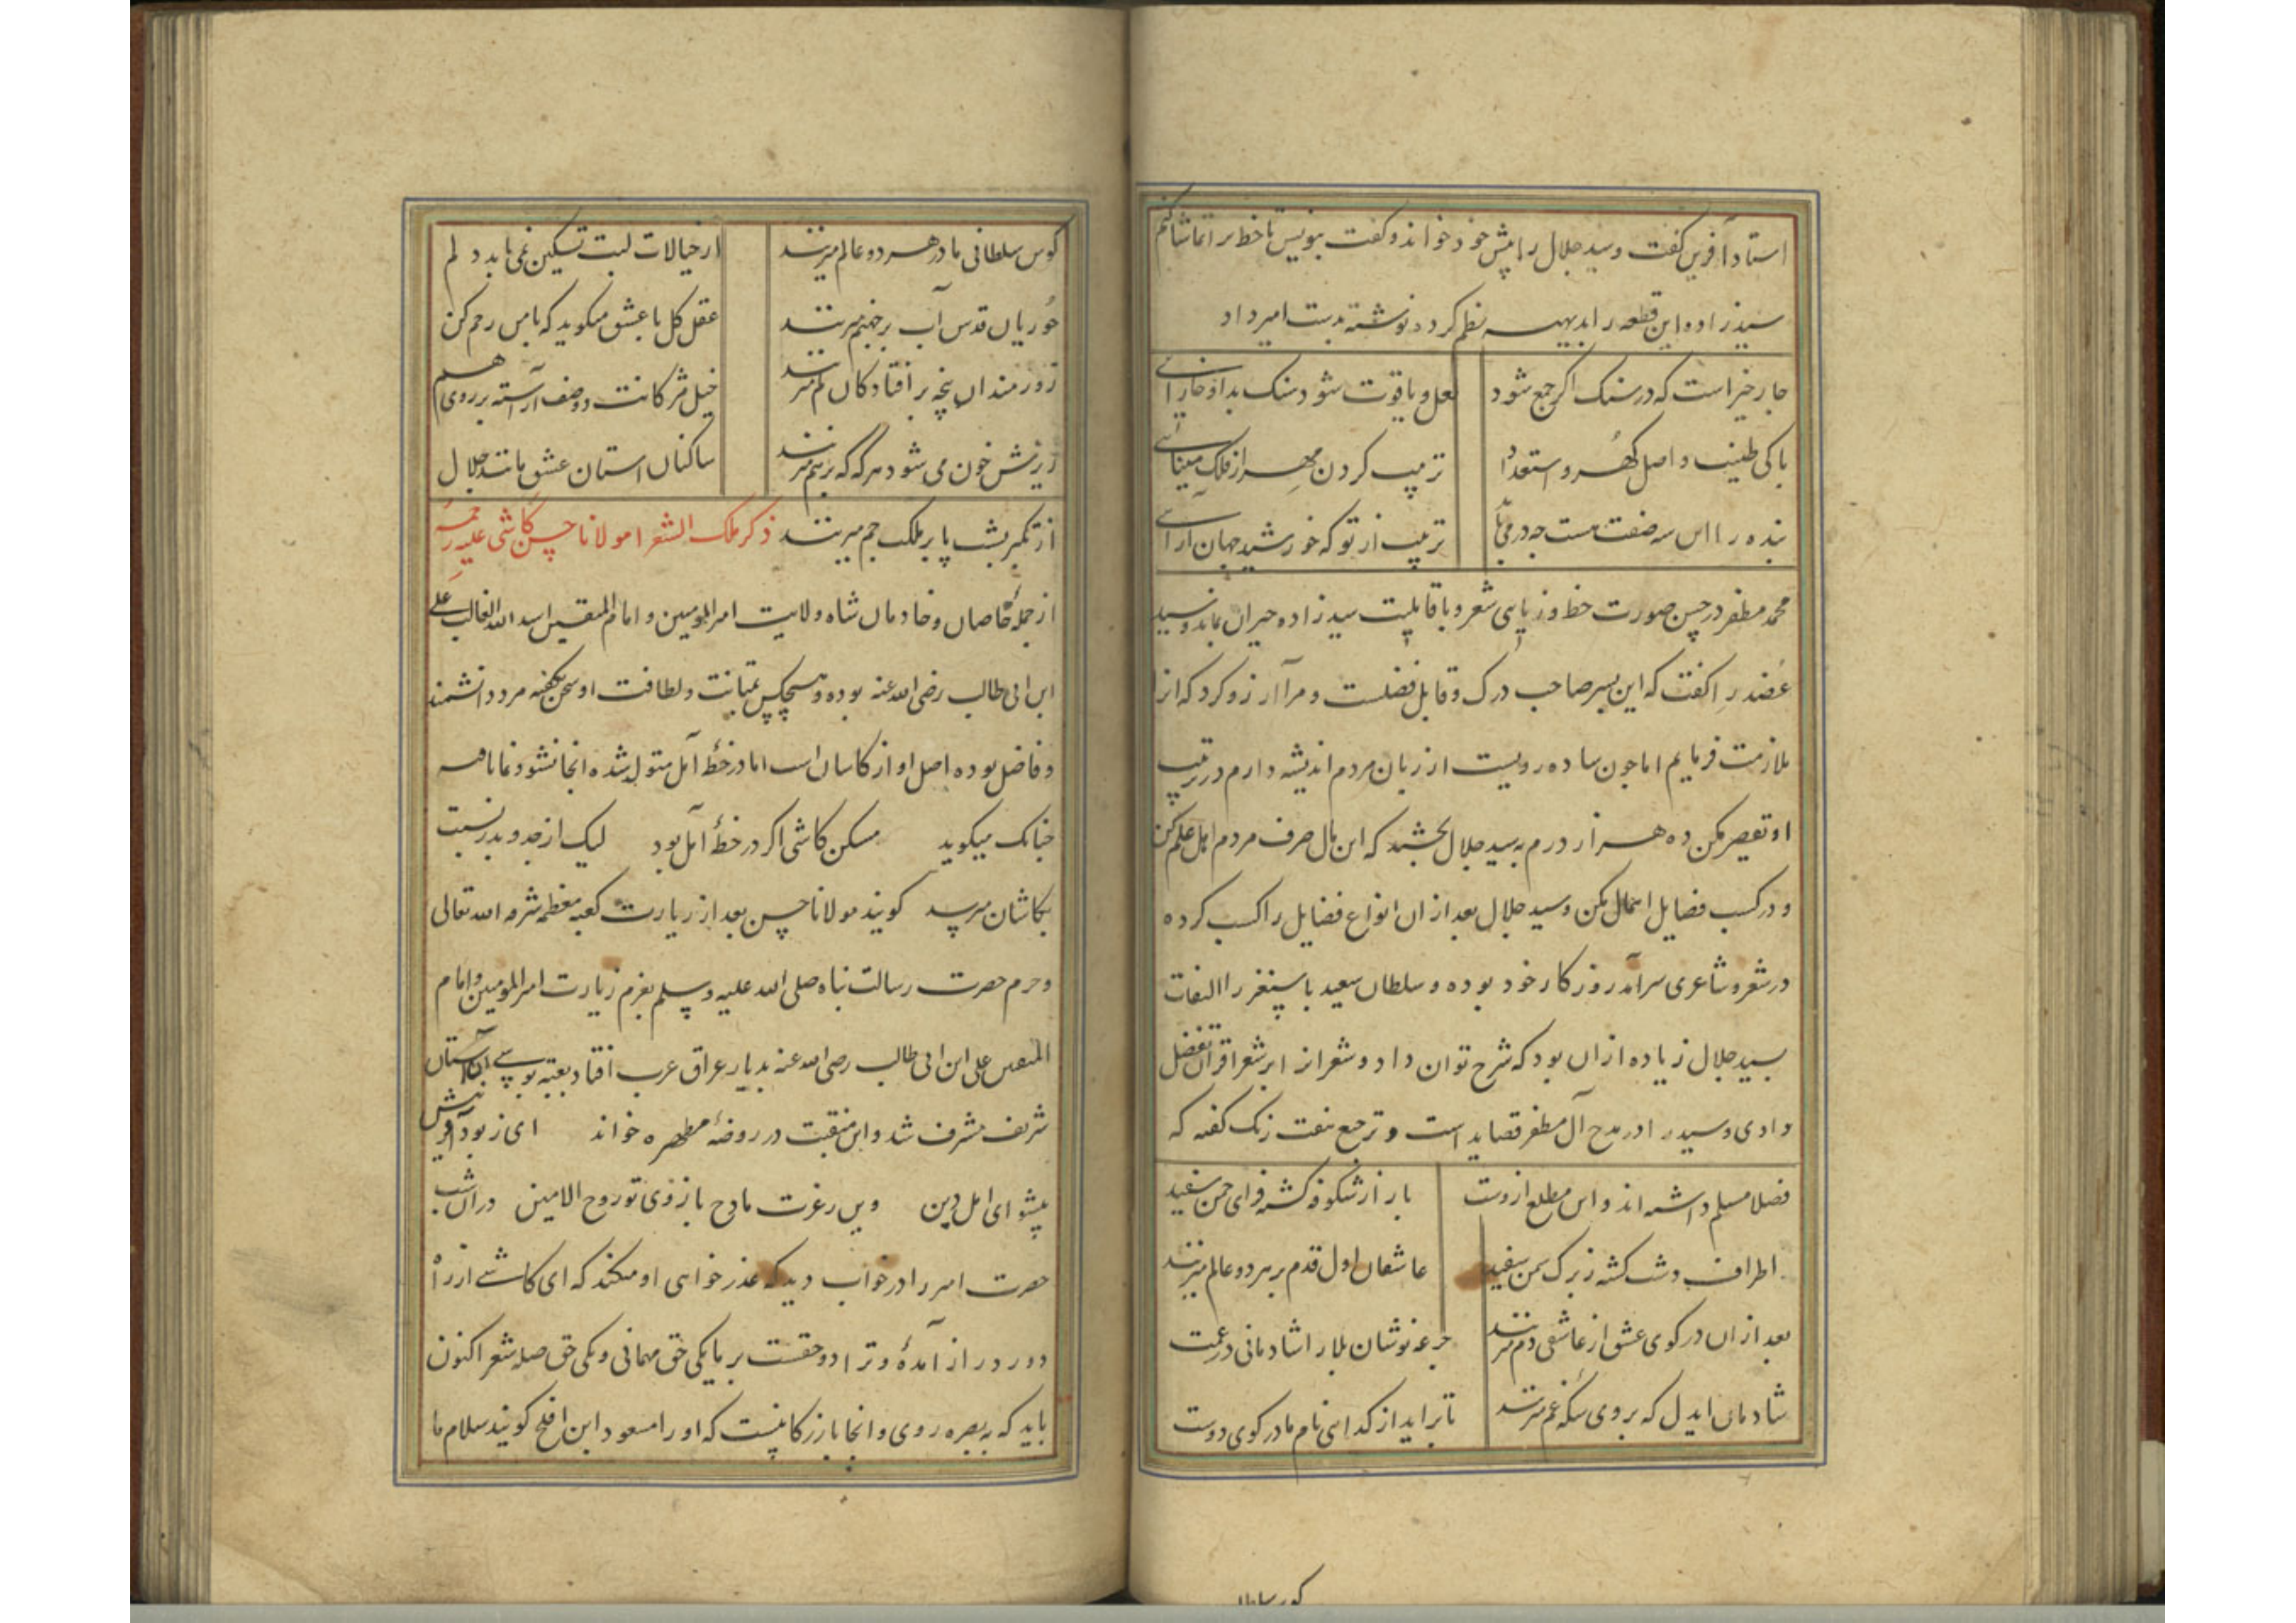 استاد آفرین کفت و سید جلال را پیش خود خواند و کفت بنویس تا خط ترا تماشا کنم
سیدزاده این قطعه را بدیهه نظم کرد و نوشته بدست امیر داد
چار چیز است که در سنک اکر جمع شود لعل و یاقوت شود سنک بدان خارائی
پاکی طینت و اصل کهر و استعداد تربیت کردن مهر از فلک مینائی
بنده را این سه صفت هست چه در می‌باید تربیت از تو که خورشید جهان آرائی
محمد مظفر در حسن صورت خط و زیبائی شعر و با قابلیت سیدزاده حیران بماند و سید
عضد را کفت که این پسر صاحب درک و قابل فضلست و مرا آرزو کرد که او را
ملازمت فرمایم اما چون ساده رویست از زبان مردم اندیشه دارم در تربیت
او تقصیر مکن ده هزار درم به سید جلال بخشید که این مال صرف مردم اهل علم کن
و در کسب فضایل اهمال مکن و سید جلال بعد از آن انواع فضایل را کسب کرده
در شعر و شاعری سرآمد روزکار خود بوده و سلطان سعید بایسنغر را التفات
بسید جلال زیاده از آن بود که شرح توان داد و شعر او را بر شعر اقران تفضل
دادی و سید را در مدح آل مظفر قصاید است و ترجیع هفت رنک کفته که
فضلا مسلم داشته‌اند و این مطلع ازوست باز از شکوفه کشته فزای چمن سفید
اطراف دشت کشته ز برک سمن سفید عاشقان اول قدم بر هر دو عالم میزنند
بعد از آن در کوی عشق از عاشقی دم میزنند جرعه نوشان بلا را شادمانی در غمت
شادمان ایدل که بر روی سکه غم میزنند تا برآید از کدائی نام ما در کوی دوست
کوس سلطانی
کوس سلطانی ما در هر دو عالم میزنند از خیالات لبت تسکین نمی‌یابد دلم
حوریان قدس آب بر جهنم میزنند عقل کل با عشق میکوید که با من رحم کن
زورمندان پنجه بر افتادکان کم میزنند خیل مژکانت دو صف آراسته بر روی هم
زیرنش خون می شود هرکه که بر هم میزنند ساکنان استان عشق مانند جلال
از تکبر پشت پا بر ملک جم میزنند ذکر ملک الشعرا مولانا حسن کاشی علیه رحمه
از جمله خاصان و خادمان شاه ولایت امیرالمومنین و امام المتقین اسد الله الغالب علی
ابن ابی طالب رضی الله عنه بوده و هیچکس بمتانت و لطافت او سخن نکفته مرد دانشمند
و فاضل بوده اصل او از کاشان است اما در خطه آمل متولد شده و انجا نشو و نما یافته
چنانک میکوید مسکن کاشی اکر در خطه آمل بود لیک از جد و پدر نسبت
بکاشان میرسد کویند مولانا حسن بعد از زیارت کعبه معظمه شرفه الله تعالی
و حرم حضرت رسالت پناه صلی الله علیه و سلم بعزم زیارت امیرالمومنین و امام
المتقین علی ابن ابی طالب رضی الله عنه بدیار عراق عرب افتاد بعتبه بوسی آن آستان
شریف مشرف شد و این منقبت در روضه مطهره خواند ای ز بود آفرینش
پیشوای اهل دین وین رعزت مادح بازوی تو روح الامین در آن شب
حضرت امیر را در خواب دید که عذرخواهی او میکند که ای کاشی از راه
دور دراز آمده و ترا دو حقست بر ما یکی حق مهمانی و یکی حق صله شعر اکنون
باید که به بصره روی و انجا بازرکانیست که او را مسعود ابن افلح کویند سلام ما